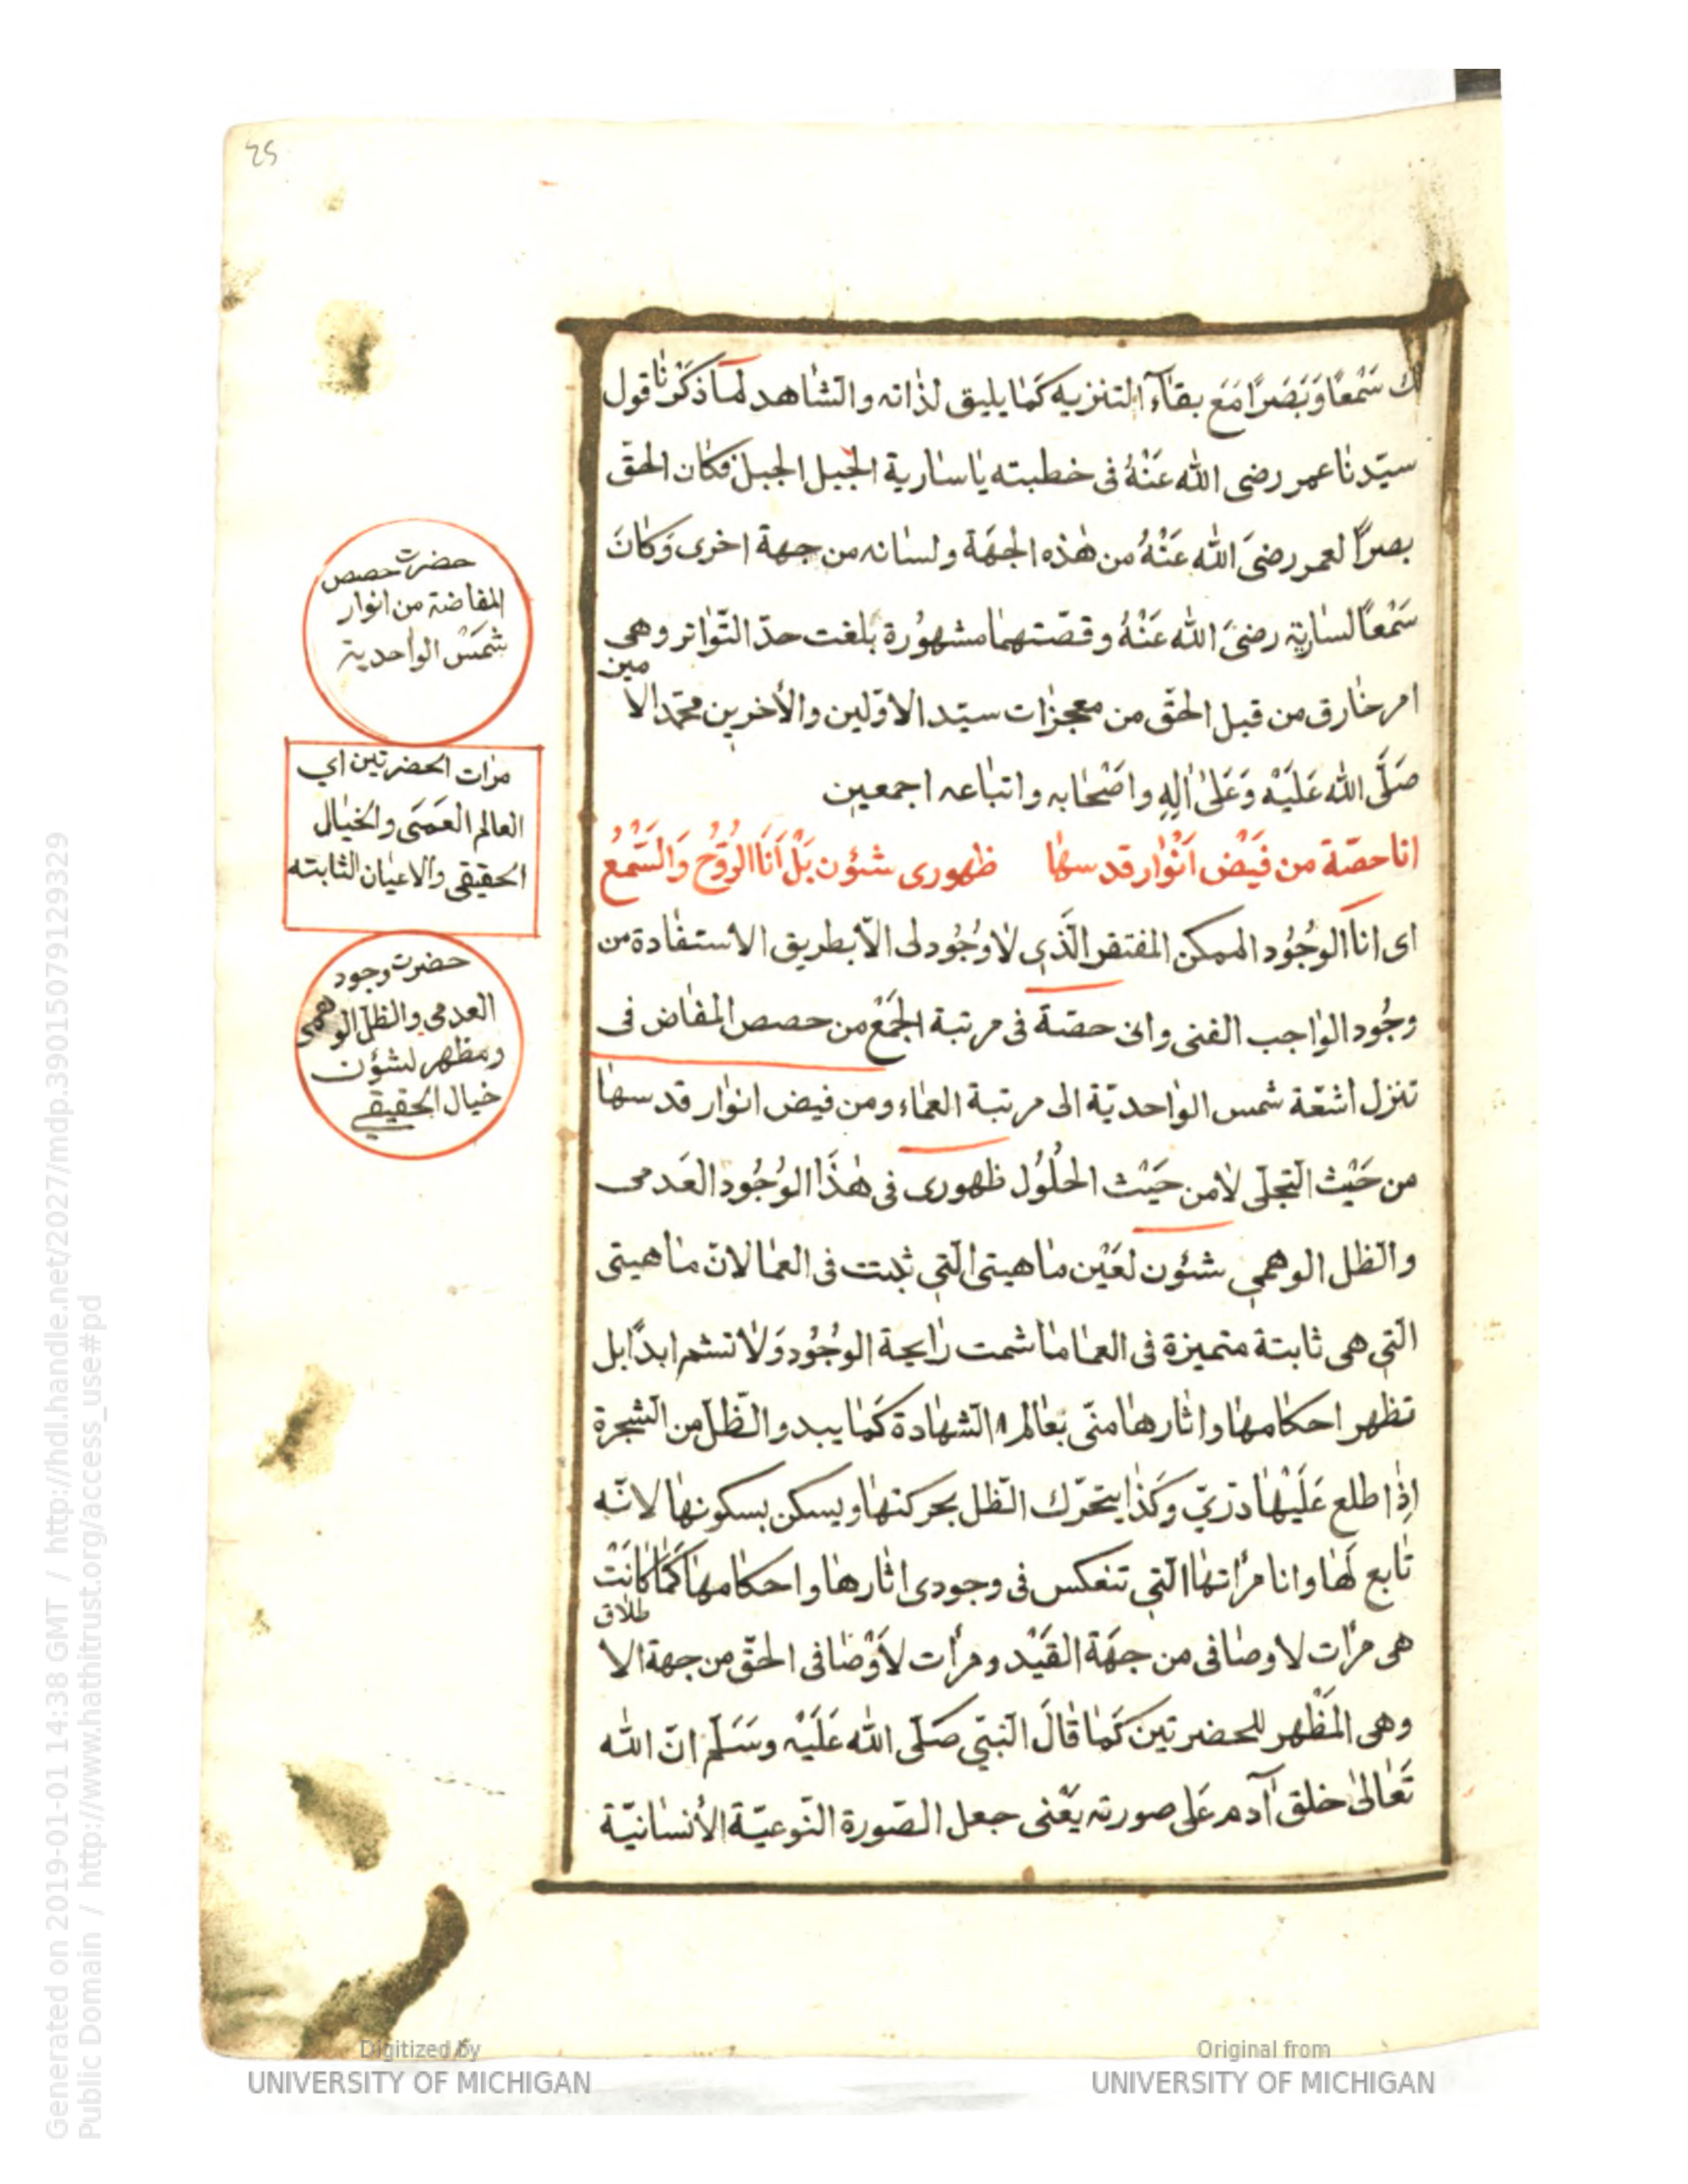 25
لك سَمْعًا وَبَصَرًا مَعَ بقاء التنزيه كَمَا يليق لذاته والشاهد لما ذكَرْنا قول
سيّدنا عمر رضى الله عَنْهُ فى خطبته يا سارية الجبل الجبل فكان الحقّ
بصرًا لعمر رضىَ الله عَنْهُ من هذه الجهَة ولسانه من جهة اخرى وَكانَ
سَمْعًا لسارية رضىَ الله عَنْهُ وقصّتهما مشهوُرة بلغت حدّ التّواتر وهى
امر خارق من قبل الحقّ من معجزات سيّد الاوّلين والأخرين محمّد الامين
صَلَّى الله عَلَيْه وَعَلىٰ اٰلِهِ واصْحَابه واتباعه اجمعين
انا حصّة من فَيْض اَنْوار قد سها ظهورى شئون بَلْ اَنَا الروُّحُ وَالسَّمْعُ
اى انا الوجُوُد الممكن المفتقر الّذي لا وُجُود لى الاّ بطريق الاستفادة من
وجُود الواجب الغنى وانى حصّة فى مرتبة الجَمْع من حصص المفاض فى
تنزل اشعّة شمس الواحديّة الى مرتبة العماء ومن فيض انوار قد سها
من حَيْث التجلّى لا من حَيْث الحلُوُل ظهورى فى هٰذَا الوُجُود العَدمى
والظل الوهمي شئون لعَيْن ماهيتى الّتي ثبت فى العما لانّ ماهيتى
الّتي هى ثابتة متميزة فى العما ما شمت رايحة الوجُوُد وَلا تشم ابدًا بل
تظهر احكامها واثارها منّى بعالم الشهادة كَما يبدو الظّل من الشجرة
اذا طلع عَلَيْها درّيّ وكَذا يتحرّك الظل بحركتها ويسكن بسكونها لانّه
تابع لَها وانا مرأتها الّتي تنعكس فى وجودى اثارها واحكامها كَما كانَتْ
هى مرأت لاوصافى من جهَة القَيْد ومرأت لاَوْصافى الحقّ من جهة الاطلاق
وهى المَظْهر للحضرتين كَما قالَ النبّي صَلّى الله عَلَيْه وسَلّم انّ الله
تَعالىٰ خلق اٰدم عَلى صورته يَعْنى جعل الصّورة النّوعيّة الأنسانيّة
حضرت حصص
المفاضة من انوار
شمَسْ الواحدية
مرات الحضرتين اي
العالم العَمَى والخيال
الحقيقي والاعيان الثابته
حضرت وجود
العدمي والظل الوهمى
ومظهر لشؤن
خيال الحقيقي
Generated on 2019-01-01 14:38 GMT / http://hdl.handle.net/2027/mdp.39015079129329
Public Domain / http://www.hathitrust.org/access_use#pd
Digitized by
UNIVERSITY OF MICHIGAN
Original from
UNIVERSITY OF MICHIGAN